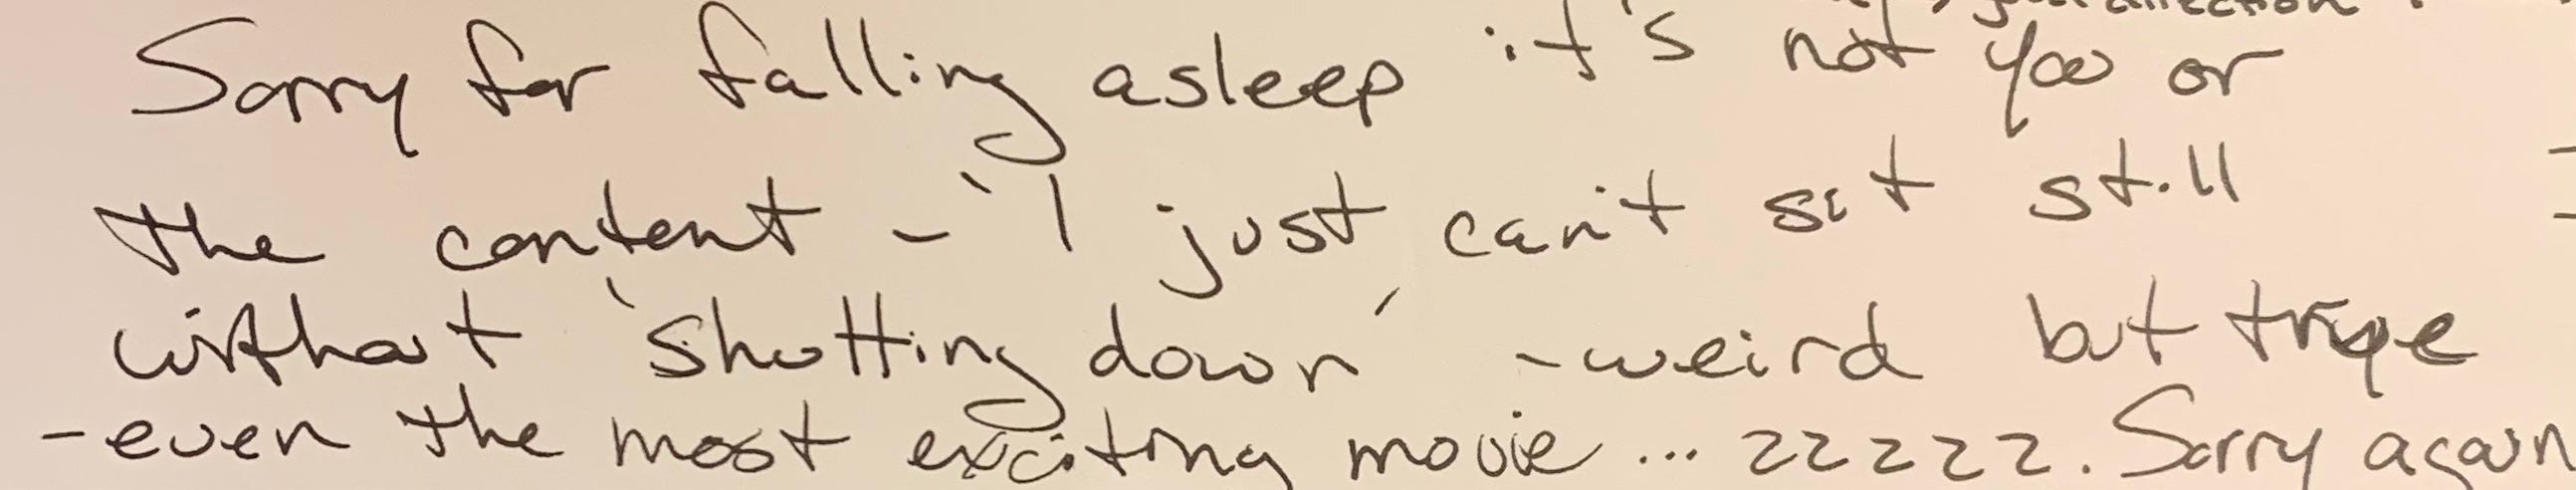 Sorry for falling asleep it's not you or
the content - I just can't sit still
without 'shutting down' - weird but true
- even the most exciting movie... zzzzz. Sorry again